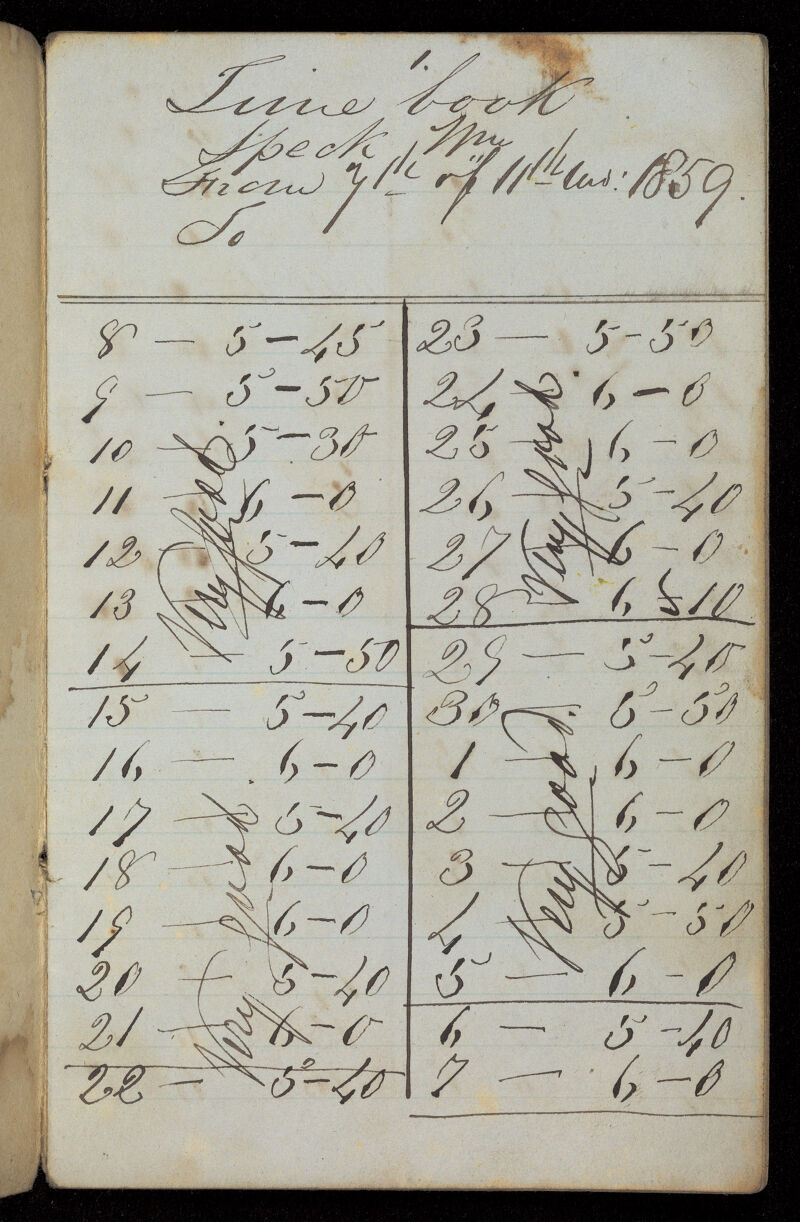 1.
Time book
Speck Wm
From 7th of 11th mo: 1859.
To
8 — 5 — 45
9 — 5 — 50
10 — 5 — 30
11 — 6 — 0
12 — 5 — 40
13 — 6 — 0
14 — 5 — 50
Very good.
15 — 5 — 40
16 — 6 — 0
17 — 5 — 40
18 — 6 — 0
19 — 6 — 0
20 — 5 — 40
21 — 6 — 0
Very good.
22 — 5 — 40
23 — 5 — 50
24 — 6 — 0
25 — 6 — 0
26 — 5 — 40
27 — 6 — 0
28 6 & 10
Very good.
29 — 5 — 40
30 5 — 50
1 — 6 — 0
2 — 6 — 0
3 — 5 — 40
4 — 5 — 50
5 — 6 — 0
Very good.
6 — 5 — 40
7 — 6 — 0